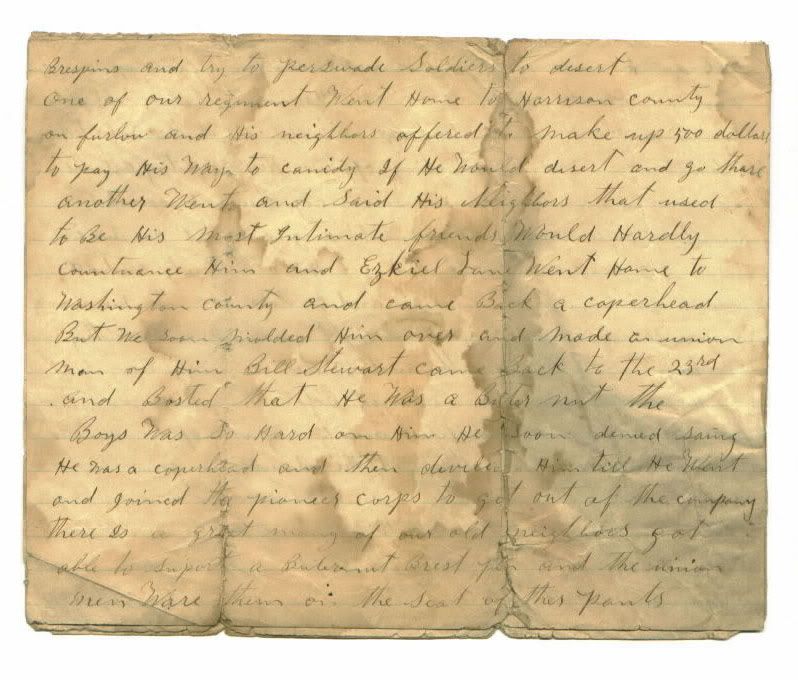 Brespins and try to perswade Soldiers to desert
One of our regiment Went Home to Harrison county
on furlow and His neighbors offered to make up 500 dollars
to pay His Way to canidy If He Would desert and go thare
another Went and Said His Neighbors that used
to Be His most Intimate friends Would Hardly
countuance Him and Ezkiel Lane Went Home to
Washington county and came Back a coperhead
But We soon molded Him over and made a union
man of Him Bill Stewart came Back to the 23rd
and Bosted that He Was a Buternut the
Boys Was So Hard on Him He soon denied saing
He was a coperhead and then deviled Him till He Went
and joined the pioneer corps to get out of the company
there Is a great many of our old neighbors got
able to suport a Buternut Brest pin and the union
men Ware them on the Seat of thes pants